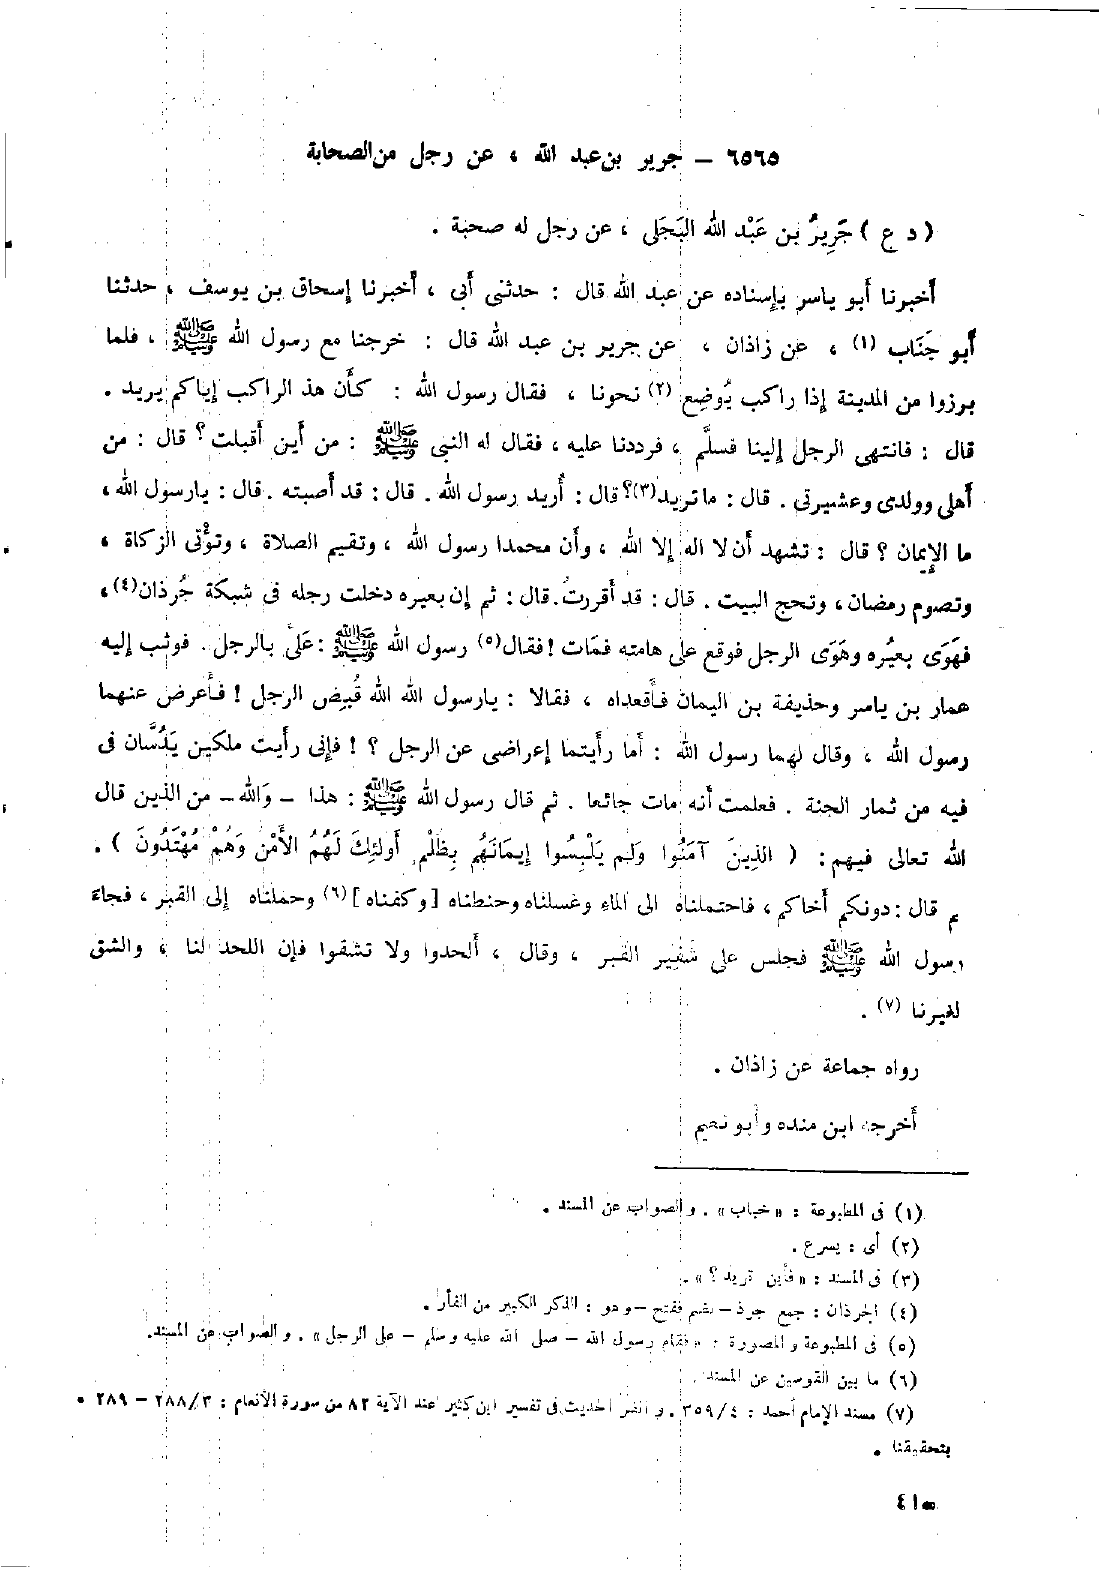 ٦٥٦٥ – جرير بن عبد الله ، عن رجل من الصحابة
( د ع ) جَرِيرُ بن عَبْد الله البَجَلى ، عن رجل له صحبة .
أخبرنا أبو ياسر بإسناده عن عبد الله قال : حدثنى أبى ، أخبرنا إسحاق بن يوسف ، حدثنا
أبو جَنَاب (١) ، عن زاذان ، عن جرير بن عبد الله قال : خرجنا مع رسول الله ﷺ ، فلما
برزوا من المدينة إذا راكب يُوضِع (٢) نحونا ، فقال رسول الله : كأن هذ الراكب إياكم يريد .
قال : فانتهى الرجل إلينا فسلَّم ، فرددنا عليه ، فقال له النبى ﷺ : من أين أقبلت ؟ قال : من
أهلى وولدى وعشيرتى . قال : ما تريد (٣)؟ قال : أُريد رسول الله . قال : قد أصبته . قال : يارسول الله ،
ما الإيمان ؟ قال : تشهد أن لا اله إلا الله ، وأن محمدا رسول الله ، وتقيم الصلاة ، وتؤْتى الزكاة ،
وتصوم رمضان ، وتحج البيت . قال : قد أقررتُ . قال : ثم إن بعيره دخلت رجله فى شبكة جُرذان (٤) ،
فَهَوَى بعيُره وهَوَى الرجل فوقع على هامته فمَات ! فقال (٥) رسول الله ﷺ : عَلَىَّ بالرجل . فوثب إليه
عمار بن ياسر وحذيفة بن اليمان فأقعداه ، فقالا : يارسول الله الله قُبِض الرجل ! فأعرض عنهما
رسول الله ، وقال لهما رسول الله : أما رأيتما إعراضى عن الرجل ؟ ! فإنى رأيت ملكين يَدُسَّان فى
فيه من ثمار الجنة . فعلمت أنه مات جائعا . ثم قال رسول الله ﷺ : هذا – وَالله – من الذين قال
الله تعالى فيهم : ( الذِينَ آمَنُوا وَلم يَلْبِسُوا إِيمَانَهُم بِظُلْم أولئِكَ لَهُمُ الأَمْن وَهُمْ مُهْتَدُونَ ) .
م قال : دونكم أخاكم ، فاحتملناه الى الماء وغسلناه وحنطناه [وكفناه] (٦) وحملناه إلى القبر ، فجاء
رسول الله ﷺ فجلس على شفير القبر ، وقال ، ألحدوا ولا تشقوا فإن اللحد لنا ، والشق
لغيرنا (٧) .
رواه جماعة عن زاذان .
أخرجه ابن منده وأبو نعيم
(١) فى المطبوعة : « خباب » . والصواب عن المسند .
(٢) أى : يسرع .
(٣) فى المسند : « فأين تريد ؟ » .
(٤) الجرذان : جمع جرذ – بضم ففتح – وهو : الذكر الكبير من الفأر .
(٥) فى المطبوعة والمصورة : « فقام رسول الله – صلى الله عليه وسلم – على الرجل » . والصواب عن المسند.
(٦) ما بين القوسين عن المسند .
(٧) مسند الإمام أحمد : ٣٥٩/٤ . وانظر الحديث فى تفسير ابن كثير عند الآية ٨٢ من سورة الأنعام : ٢٨٨/٣ – ٢٨٩ .
بتحقيقنا .
٤١٠